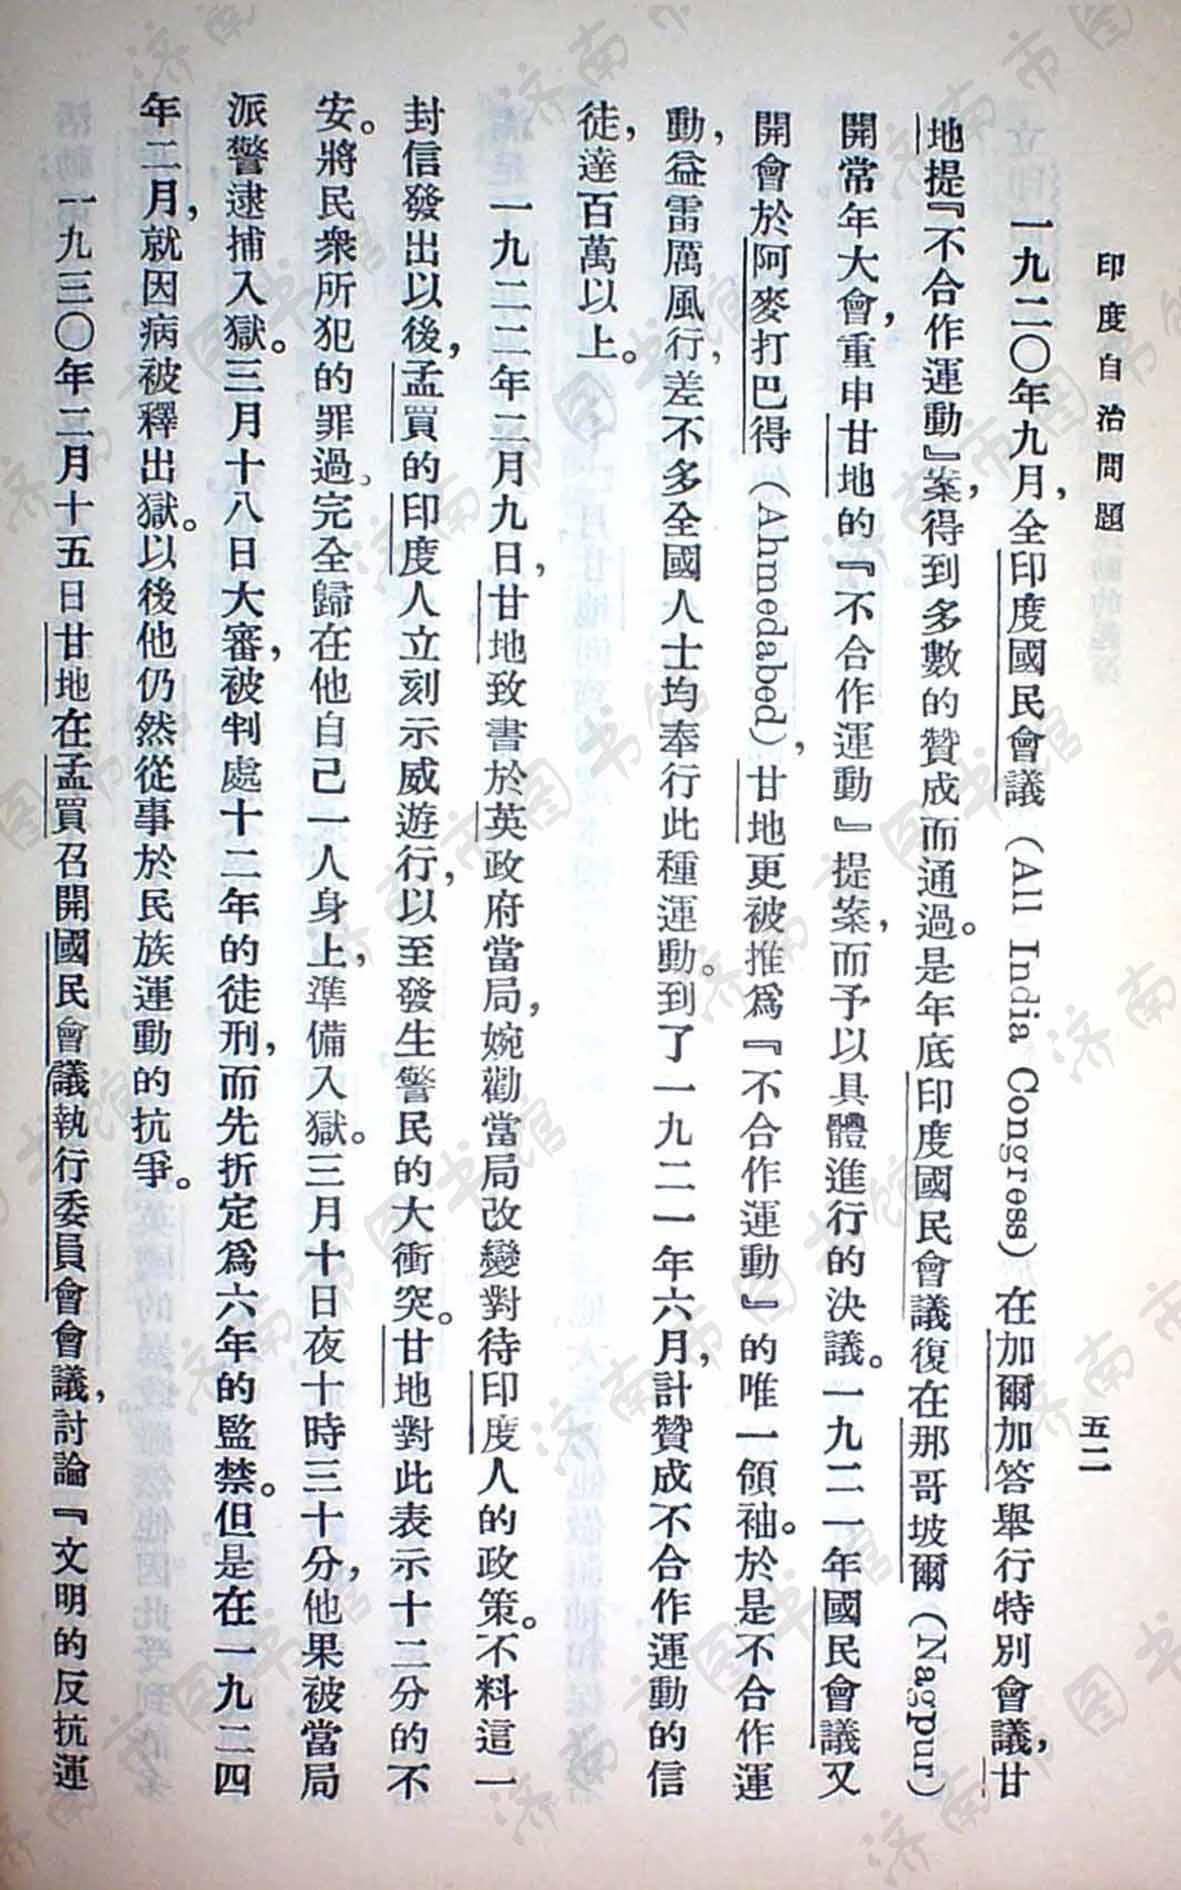 印度自治問題
五二
一九二〇年九月，全印度國民會議（All India Congress）在加爾加答舉行特別會議，甘
地提『不合作運動』案，得到多數的贊成而通過。是年底印度國民會議復在那哥坡爾（Nagpur）
開常年大會，重申甘地的『不合作運動』提案，而予以具體進行的決議。一九二一年國民會議又
開會於阿麥打巴得（Ahmedabed），甘地更被推爲『不合作運動』的唯一領袖。於是不合作運
動，益雷厲風行，差不多全國人士均奉行此種運動。到了一九二一年六月，計贊成不合作運動的信
徒，達百萬以上。
一九二二年二月九日，甘地致書於英政府當局，婉勸當局改變對待印度人的政策。不料這一
封信發出以後，孟買的印度人立刻示威遊行，以至發生警民的大衝突。甘地對此表示十二分的不
安。將民衆所犯的罪過，完全歸在他自己一人身上，準備入獄。三月十日夜十時三十分，他果被當局
派警逮捕入獄。三月十八日大審，被判處十二年的徒刑，而先折定爲六年的監禁。但是在一九二四
年二月，就因病被釋出獄。以後他仍然從事於民族運動的抗爭。
一九三〇年二月十五日甘地在孟買召開國民會議執行委員會會議，討論『文明的反抗運
济南市图书馆